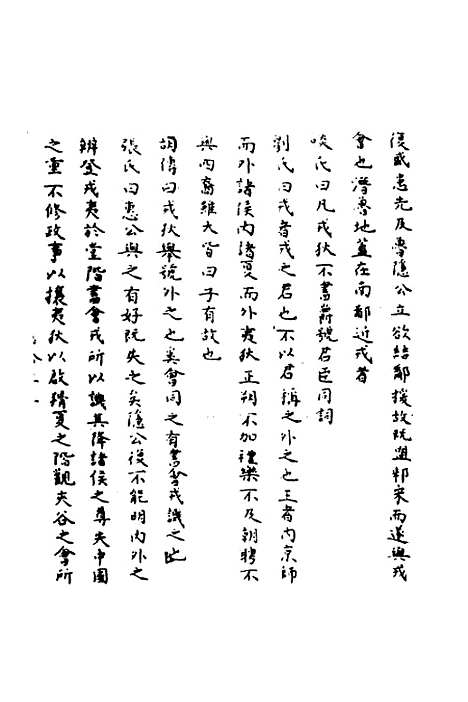 後或患先及魯隱公立欲結鄰援故既盟邾宋而遂與戎
會也潛魯地蓋在南鄙近戎者
啖氏曰凡戎狄不書爵號君臣同詞
劉氏曰戎者戎之君也不以君稱之外之也王者內京師
而外諸侯內諸夏而外夷狄正朔不加禮樂不及朝聘不
與四裔雖大皆曰子有故也
胡傳曰戎狄舉號外之也奚會同之有書會戎譏之也
張氏曰惠公與之有好既失之矣隱公復不能明內外之
辨登戎夷於堂階書會戎所以譏其降諸侯之尊失中國
之重不修政事以攘夷狄以啟猾夏之階觀夾谷之會所